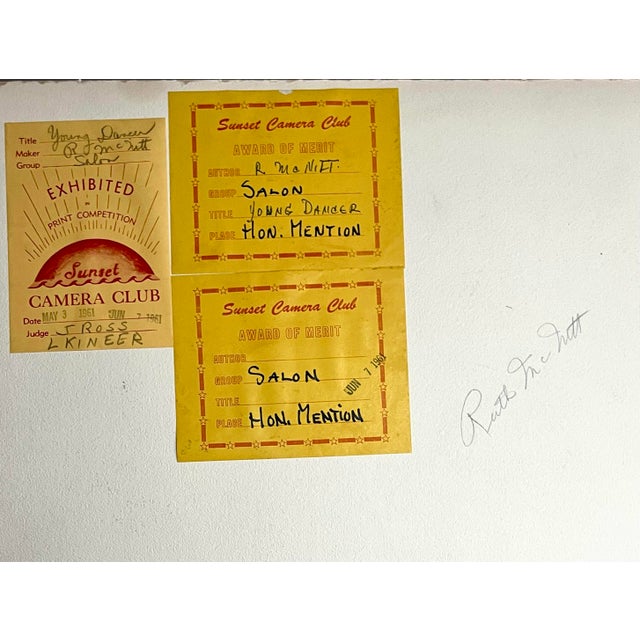 Title Young Dancer
Maker R. McNitt
Group Salon
EXHIBITED
in
PRINT COMPETITION
Sunset
CAMERA CLUB
Date MAY 3 1961 JUN 7 1961
Judge J ROSS
L KINEER
Sunset Camera Club
AWARD OF MERIT
AUTHOR R McNITT.
GROUP SALON
TITLE YOUNG DANCER
PLACE HON. MENTION
Sunset Camera Club
AWARD OF MERIT
AUTHOR
GROUP SALON
JUN 7 1961
TITLE
PLACE HON. MENTION
Ruth McNitt